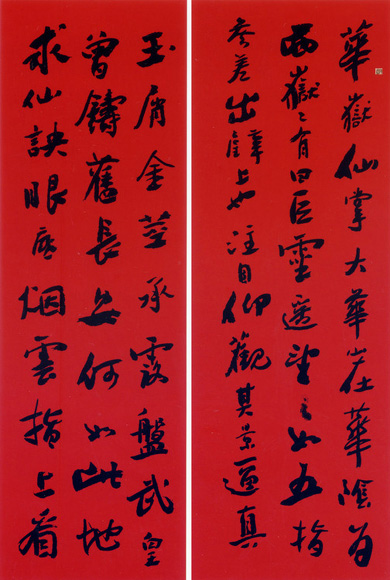 華嶽仙掌大華在華陰為
西嶽〻有曰巨靈遙望之如五指
參差出上也注目仰觀其景逼真
玉屑金莖承露盤武皇
曾鑄舊長安何如此地
求仙訣眼底烟雲指上看